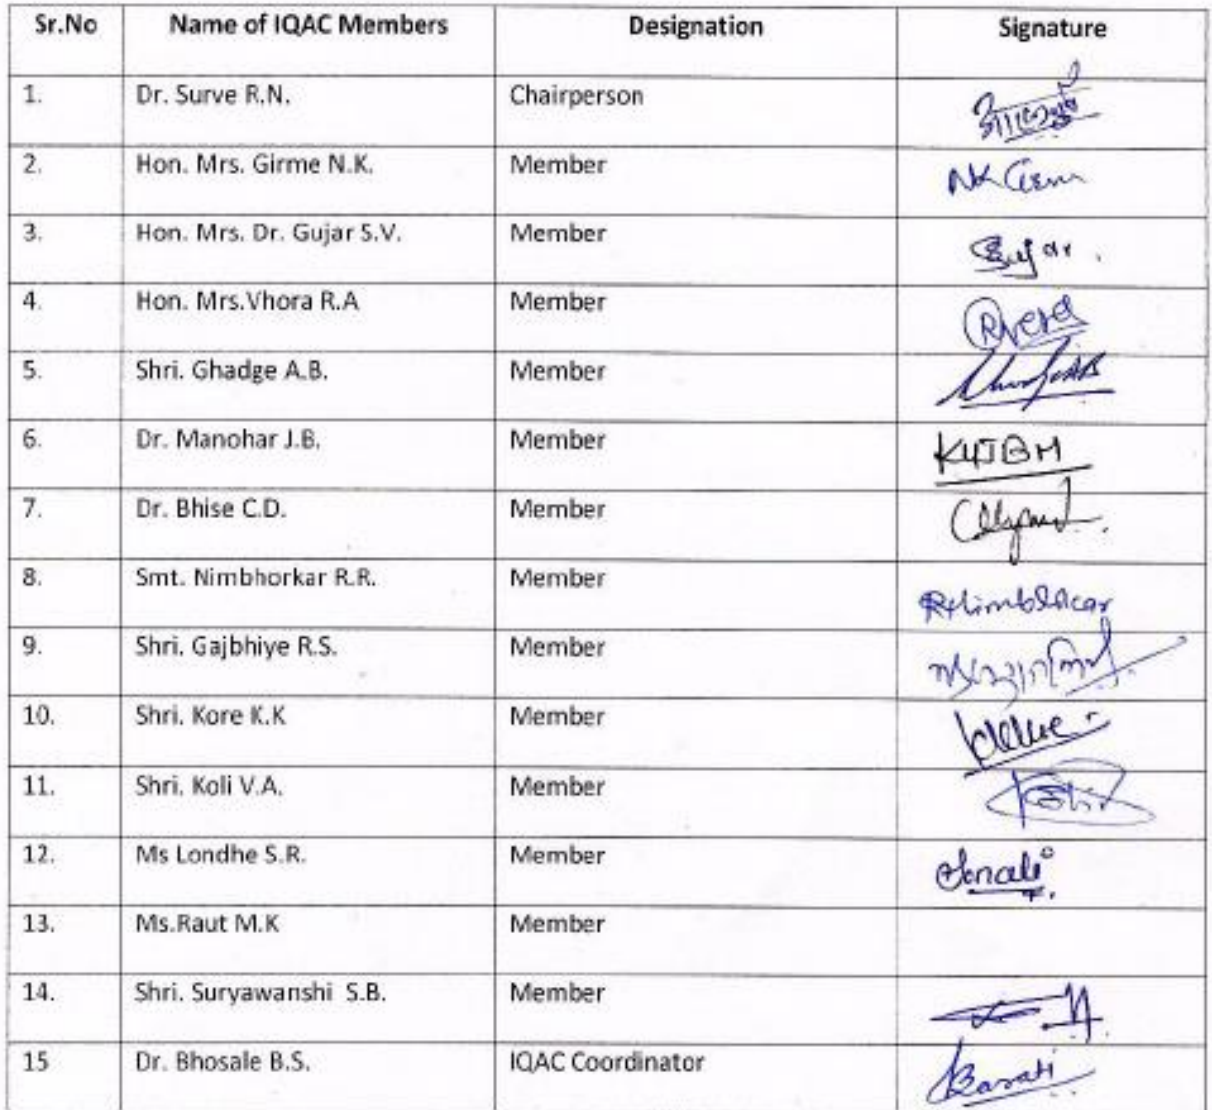 Sr.No Name of IQAC Members Designation Signature
1. Dr. Surve R.N. Chairperson
2. Hon. Mrs. Girme N.K. Member
3. Hon. Mrs. Dr. Gujar S.V. Member Gujar.
4. Hon. Mrs.Vhora R.A Member
5. Shri. Ghadge A.B. Member
6. Dr. Manohar J.B. Member
7. Dr. Bhise C.D. Member
8. Smt. Nimbhorkar R.R. Member
9. Shri. Gajbhiye R.S. Member
10. Shri. Kore K.K Member
11. Shri. Koli V.A. Member
12. Ms Londhe S.R. Member Sonali
13. Ms.Raut M.K Member
14. Shri. Suryawanshi S.B. Member
15 Dr. Bhosale B.S. IQAC Coordinator